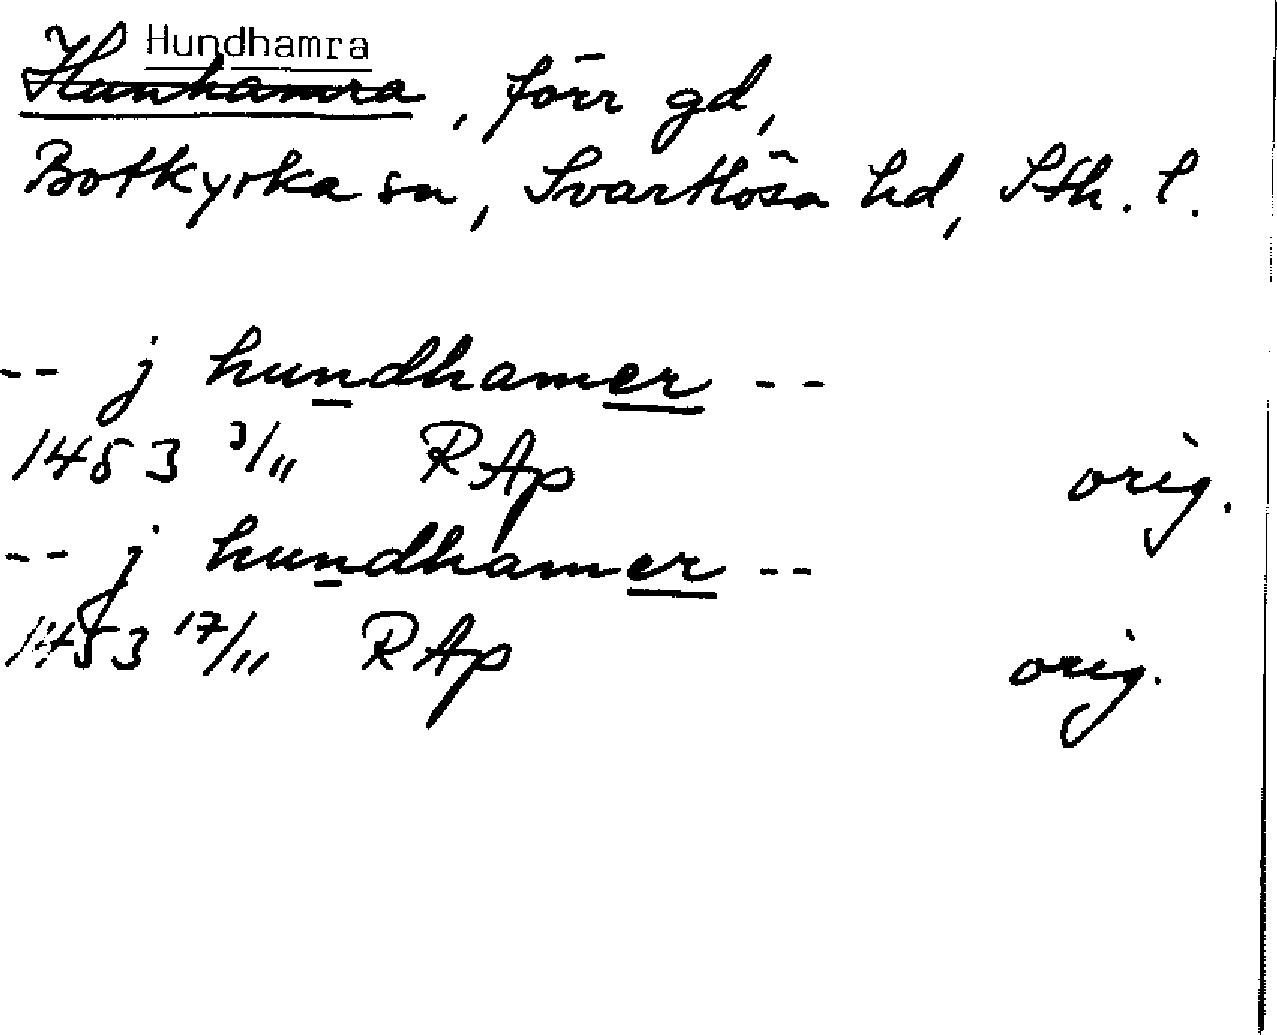 Hundhamra
Hunhamra, förr gd,
Botkyrka sn, Svartlösa hd, Sth. l.
-- j hundhamer --
1483 3/11 RAp orig.
-- j hundhamer --
1483 17/11 RAp orig.